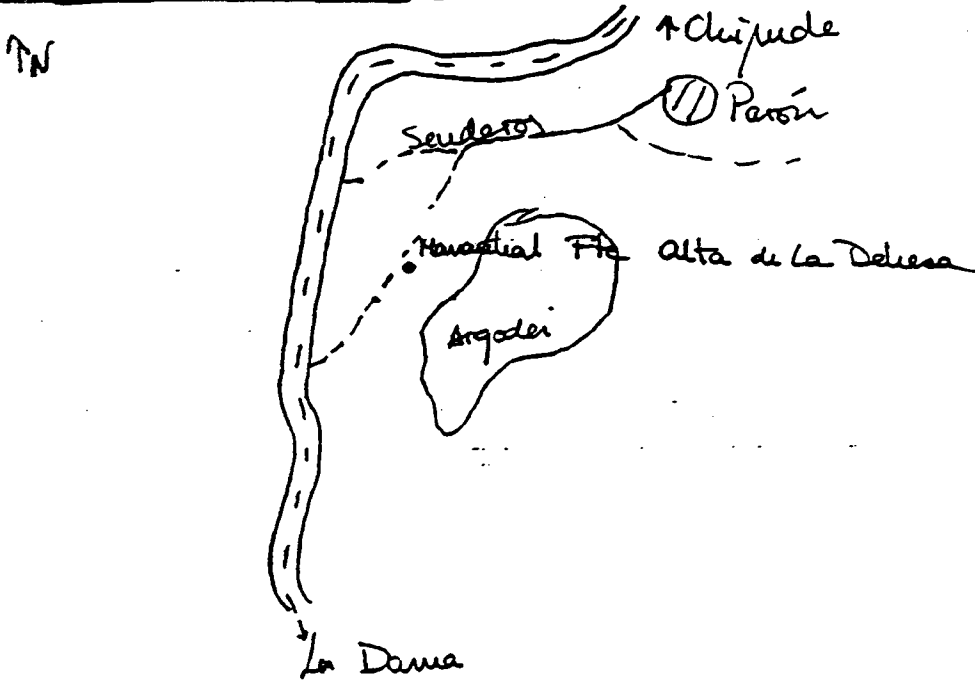 ↑N
↑ Chipude
Pavón
Senderos
Manantial Fte Alta de La Dehesa
Argodei
La Dama